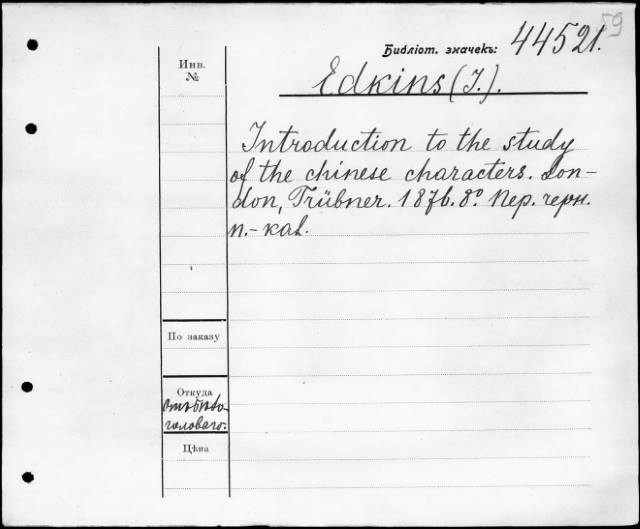 59
Библіот. значекъ: 44521.
Инв.
№
Edkins (J.).
Introduction to the study
of the chinese characters. Lon-
don, Trübner. 1876. 8º Пер. черн.
п.-кал.
По заказу
Откуда
Отъ Бѣло-
головаго.
Цѣна